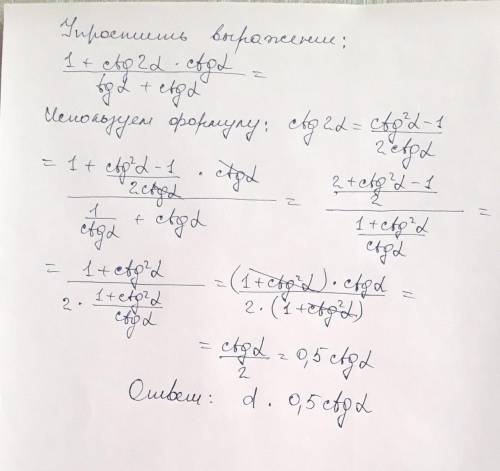 Упростить выражение:
(1 + ctg2α · ctgα)/(tgα + ctgα) =
Используем формулу: ctg2α = (ctg²α - 1)/(2ctgα)
= (1 + (ctg²α - 1)/(2ctgα) · ctgα)/(1/ctgα + ctgα) = ((2 + ctg²α - 1)/2)/((1 + ctg²α)/ctgα) =
= (1 + ctg²α)/(2 · (1 + ctg²α)/ctgα) = ((1 + ctg²α) · ctgα)/(2 · (1 + ctg²α)) =
= ctgα/2 = 0,5 ctgα
Ответ: d. 0,5 ctgα